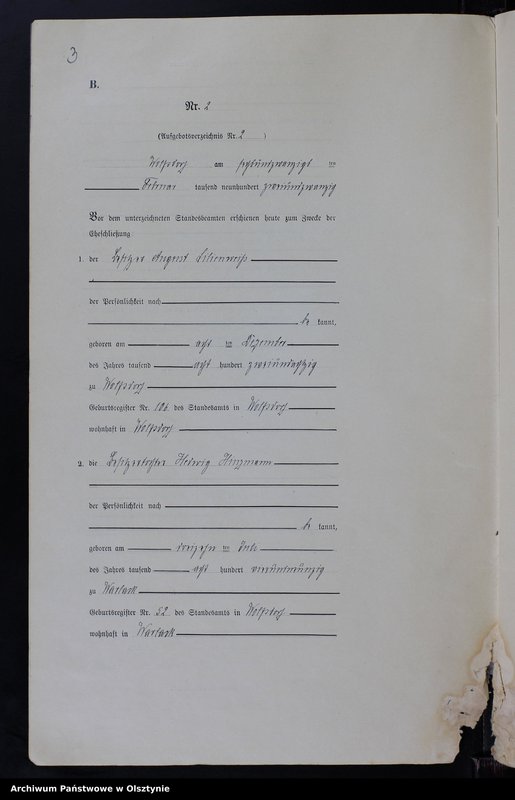 3
B.
Nr. 2
(Aufgebotsverzeichnis Nr. 2 )
Wolfsdorf am sechsundzwanzigsten
Februar tausend neunhundert zweiundzwanzig
Vor dem unterzeichneten Standesbeamten erschienen heute zum Zwecke der
Eheschließung
1. der Besitzer August Lilienweiß
der Persönlichkeit nach
be kannt,
geboren am acht ten Dezember
des Jahres tausend acht hundert
zu Wolfsdorf
Geburtsregister Nr. 106 des Standesamts in Wolfsdorf
wohnhaft in Wolfsdorf
2. die Besitzertochter Hedwig
der Persönlichkeit nach
be kannt,
geboren am dreizehn ten
des Jahres tausend acht hundert vierundneunzig
zu Warlack
Geburtsregister Nr. 52 des Standesamts in Wolfsdorf
wohnhaft in Warlack
Archiwum Państwowe w Olsztynie